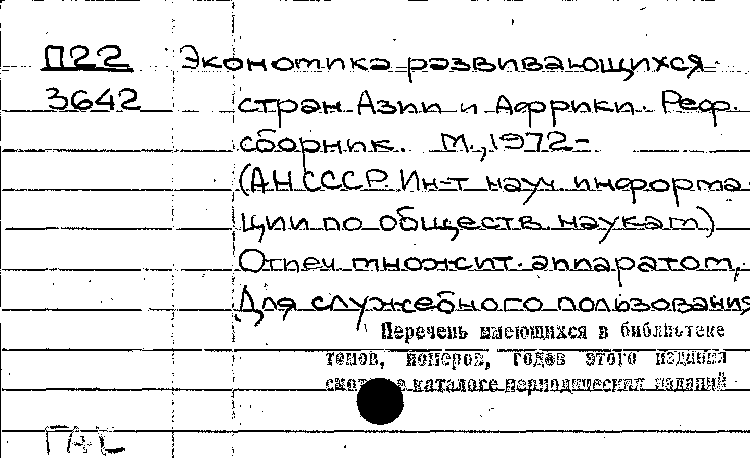 П22 Экономика развивающихся
3642 стран Азии и Африки. Реф.
сборник. М., 1972-
(АН СССР. Ин-т науч. информа
ции по обществ. наукам)
Отпеч. множит. аппаратом,
Для служебного пользования
Перечень имеющихся в библиотеке
томов, номеров, годов этого издания
смотри в каталоге периодических изданий